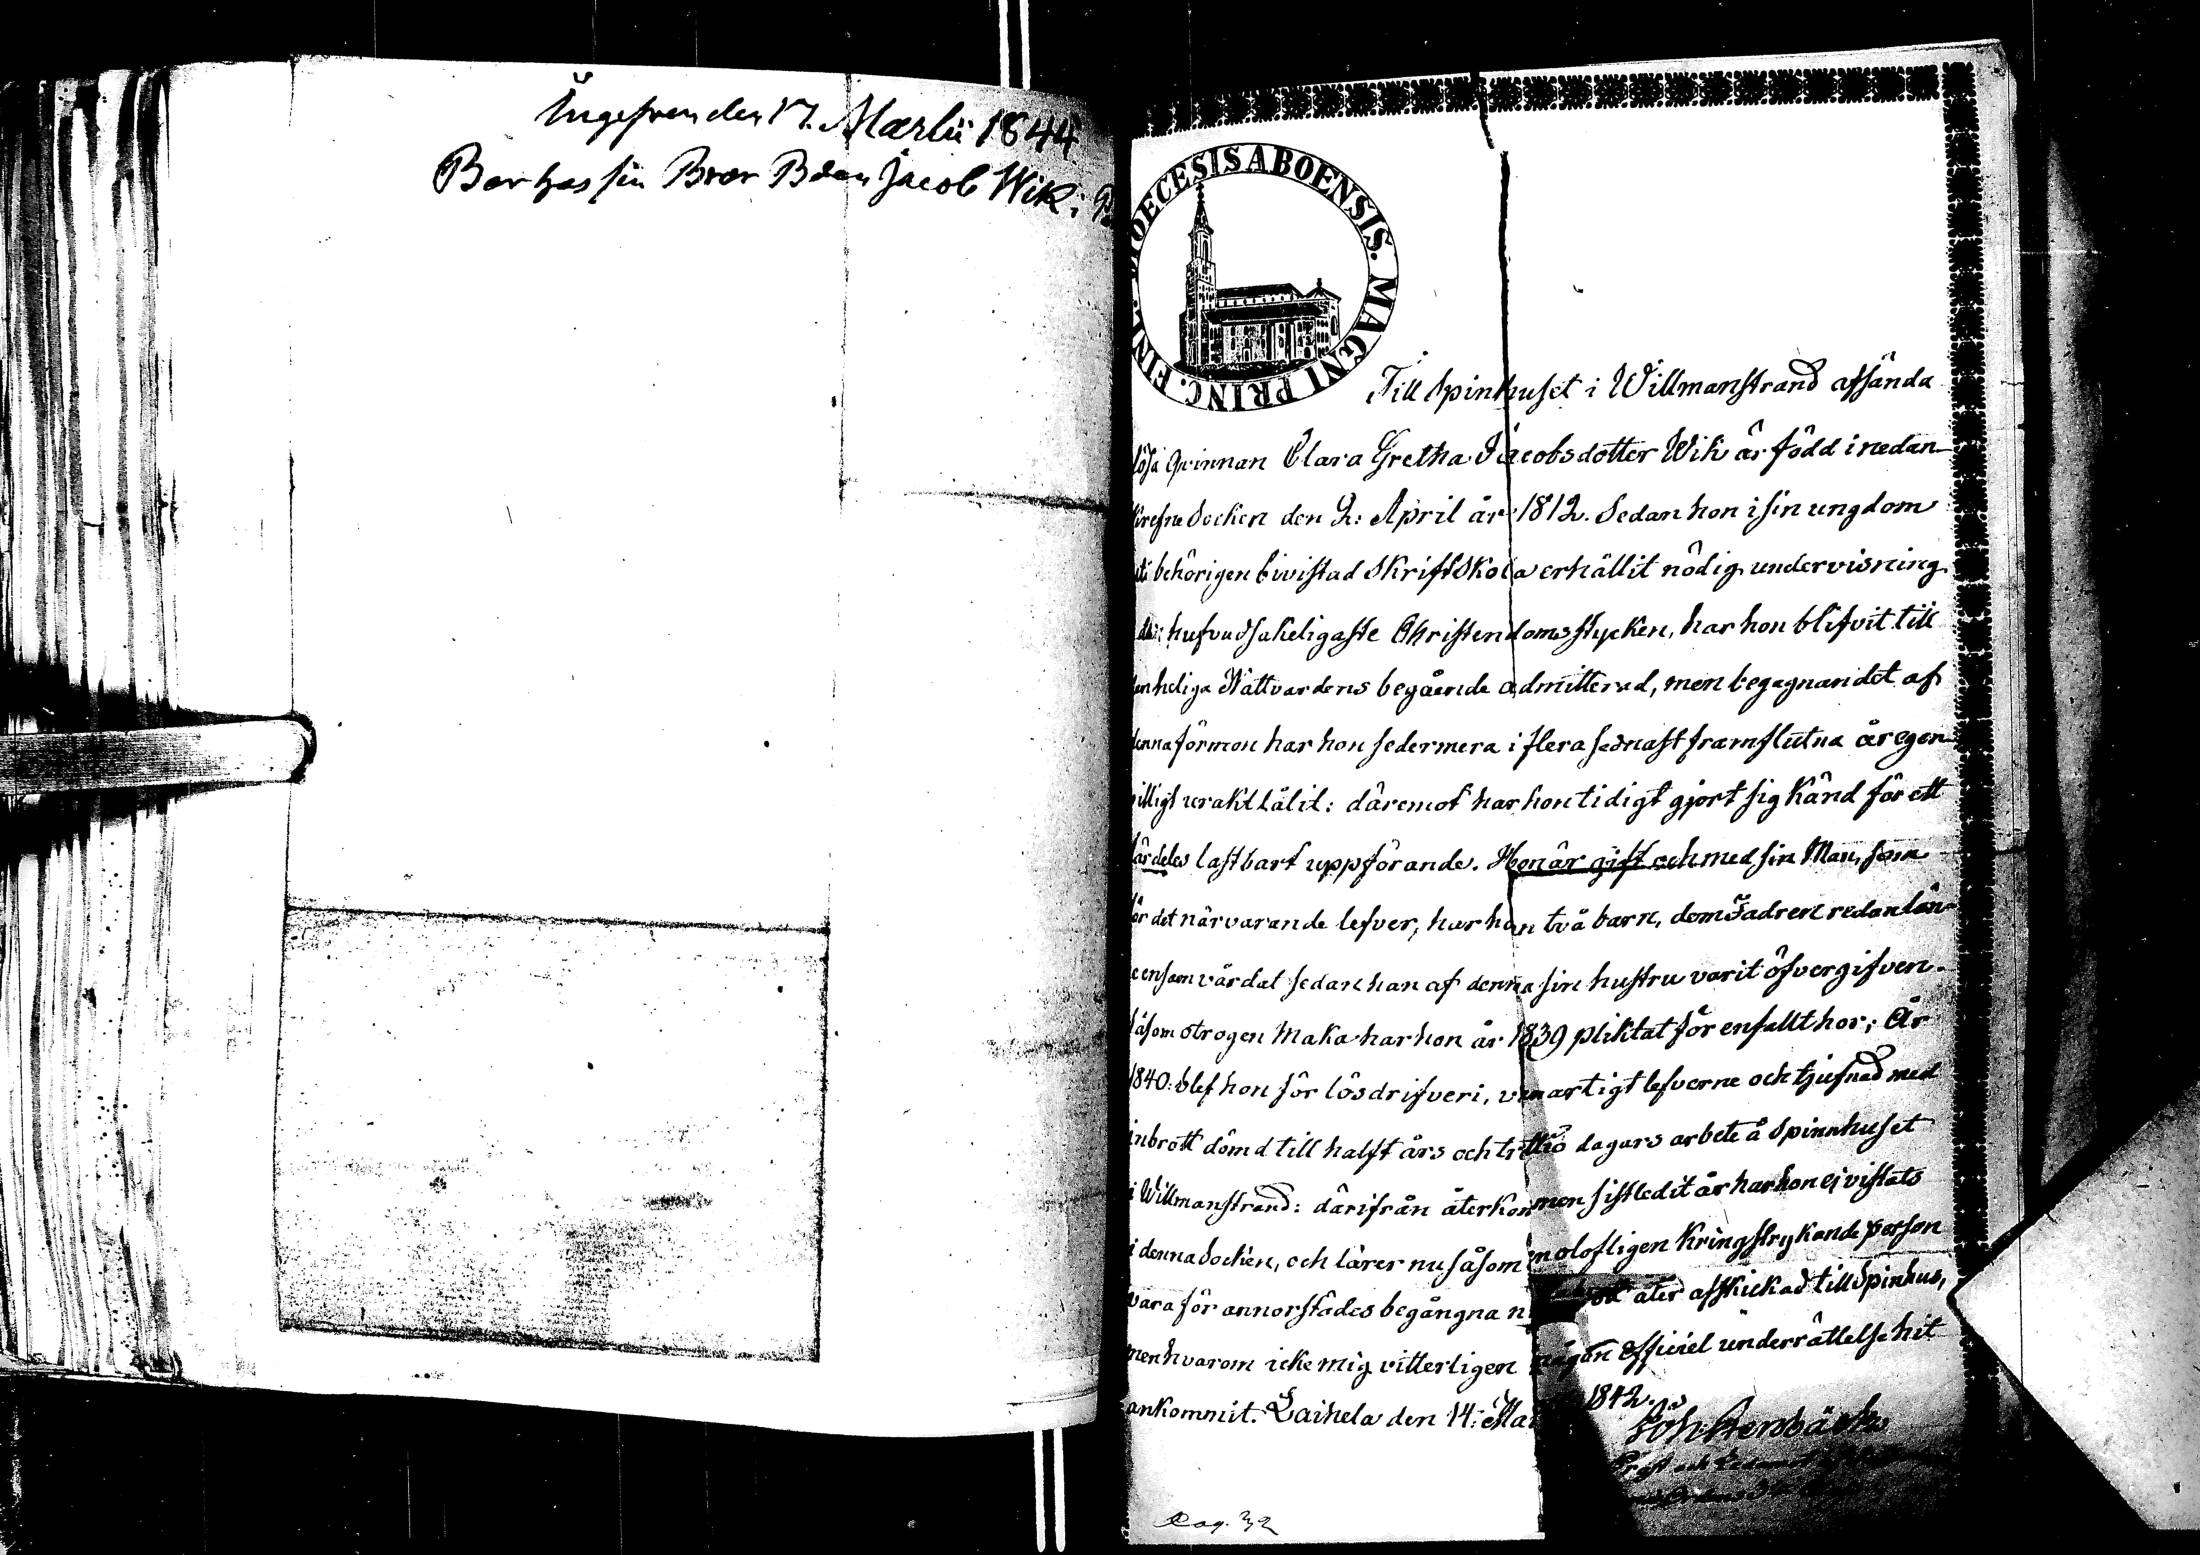 Ingifven den 17. Martii 1844
Bor hos sin Bror Bden Jacob Wik i
DIOECESIS ABOENSIS. MAGNI PRINC. FINL.
Till Spinhuset i Willmanstrand afsända
lösa qvinnan Clara Gretha Jacobsdotter Wik är född i nedan-
skrefne Socken den 2: April år 1812. Sedan hon i sin ungdom
behörigen bivistad Skriftskola erhållit nödig undervisning
hufvudsakeligaste Christendomsstycken, har hon blifvit till
den heliga Nattvardens begående admitterad, men begagnandet af
denna förmon har hon sedermera i flera sednast framflutna år egen-
villigt uraktlålit: däremot har hon tidigt gjort sig känd för ett
särdeles lastbart uppförande. Hon är gift och med sin Man, som
för det närvarande lefver, har hon två barn, dem Fadren redan län-
e ensam vårdat sedan han af denna sin hustru varit öfvergifven.
Såsom otrogen Maka har hon år 1839 pliktat för enfallt hor; År
1840 blef hon för lösdrifveri, vanartigt lefverne och tjufnad med
inbrott dömd till halft års och trettio dagars arbete å Spinnhuset
i Willmanstrand: därifrån återkommen sistledit år har hon ej vistats
i denna Socken, och lärer nu såsom en olofligen kringstrykande person
vara för annorstädes begångna åter afskickad till Spinhus,
men hvarom icke mig vitterligen någon officiel underrättelse hit
ankommit. Laihela den 14: 1842.
Pag. 32